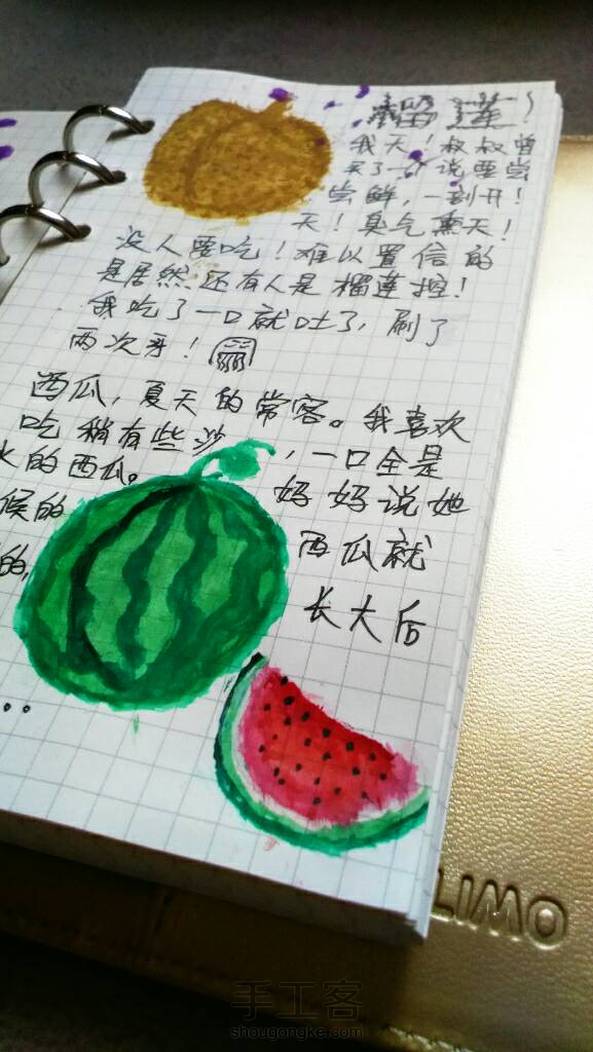 榴莲！
我天！叔叔曾
买了一个说要尝
尝鲜，一剖开！
天！臭气熏天！
没人要吃！难以置信的
是居然还有人是榴莲控！
我吃了一口就吐了，刷了
两次牙！
西瓜，夏天的常客。我喜欢
吃稍有些沙，一口全是
水的西瓜。妈妈说她
候的西瓜就
的，长大后
..
LIMO
手工客
shougongke.com